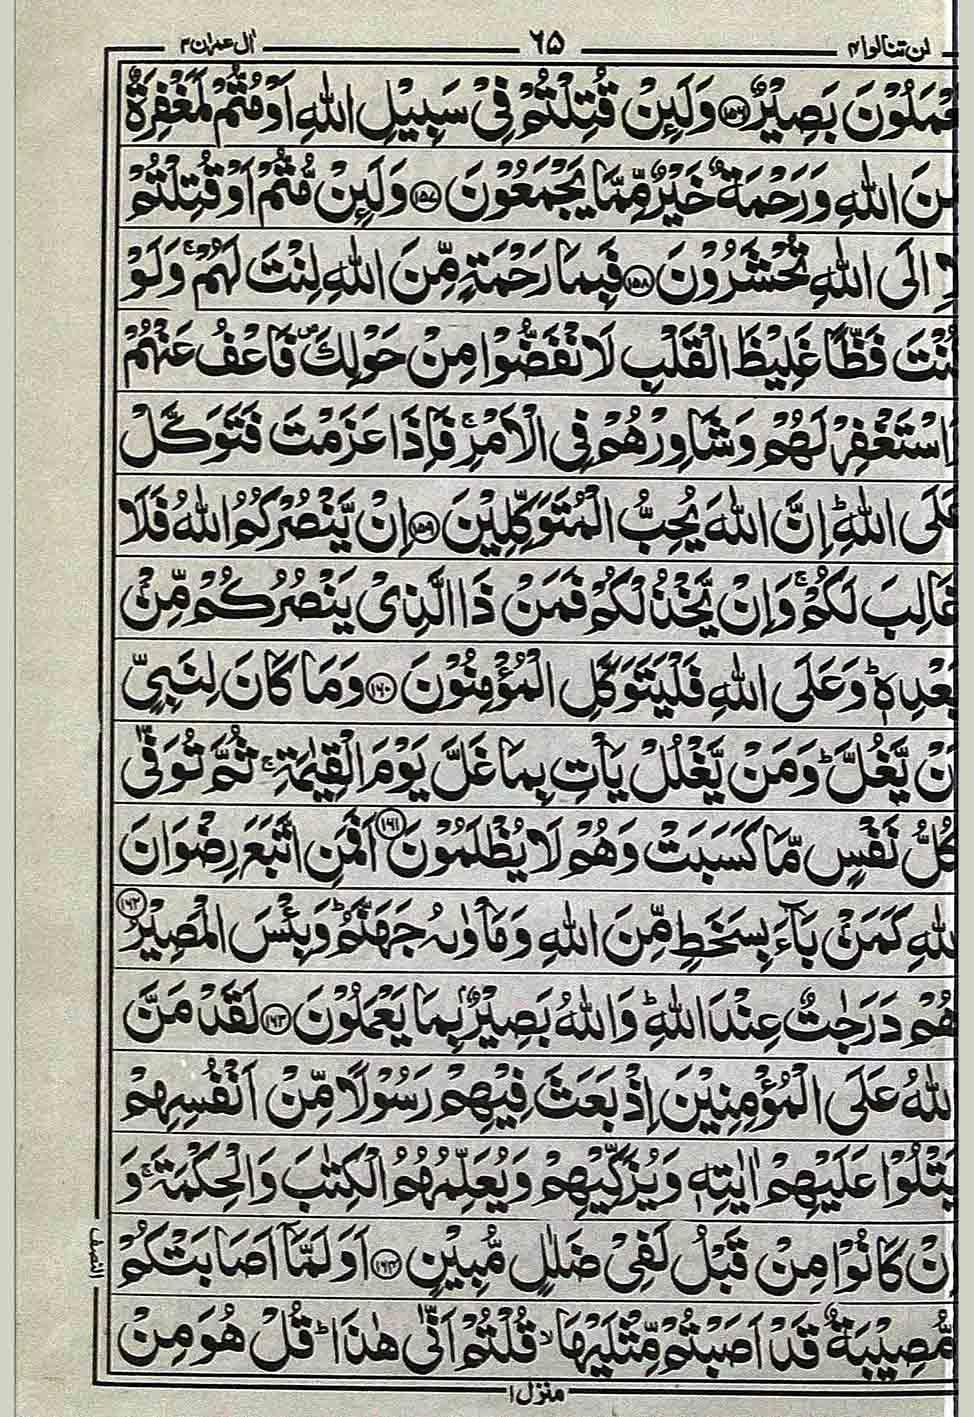 لن تنالوا ۴ ۶۵ اٰل عمران ۳
عْمَلُوْنَ بَصِیْرٌ ﴿۱۵۶﴾ وَلَىِٕنْ قُتِلْتُمْ فِیْ سَبِیْلِ اللّٰهِ اَوْ مُتُّمْ لَمَغْفِرَةٌ
مِّنَ اللّٰهِ وَرَحْمَةٌ خَیْرٌ مِّمَّا یَجْمَعُوْنَ ﴿۱۵۷﴾ وَلَىِٕنْ مُّتُّمْ اَوْ قُتِلْتُمْ
لَاۡ اِلَی اللّٰهِ تُحْشَرُوْنَ ﴿۱۵۸﴾ فَبِمَا رَحْمَةٍ مِّنَ اللّٰهِ لِنْتَ لَهُمْ ۚ وَلَوْ
كُنْتَ فَظًّا غَلِیْظَ الْقَلْبِ لَا نْفَضُّوْا مِنْ حَوْلِكَ ۪ فَاعْفُ عَنْهُمْ
اسْتَغْفِرْ لَهُمْ وَشَاوِرْهُمْ فِی الْاَمْرِ ۚ فَاِذَا عَزَمْتَ فَتَوَكَّلْ
عَلَی اللّٰهِ ؕ اِنَّ اللّٰهَ یُحِبُّ الْمُتَوَكِّلِیْنَ ﴿۱۵۹﴾ اِنْ یَّنْصُرْكُمُ اللّٰهُ فَلَا
غَالِبَ لَكُمْ ۚ وَاِنْ یَّخْذُلْكُمْ فَمَنْ ذَا الَّذِیْ یَنْصُرُكُمْ مِّنْۢ
بَعْدِهٖ ؕ وَعَلَی اللّٰهِ فَلْیَتَوَكَّلِ الْمُؤْمِنُوْنَ ﴿۱۶۰﴾ وَمَا كَانَ لِنَبِیٍّ
نْ یَّغُلَّ ؕ وَمَنْ یَّغْلُلْ یَاْتِ بِمَا غَلَّ یَوْمَ الْقِیٰمَةِ ۚ ثُمَّ تُوَفّٰی
كُلُّ نَفْسٍ مَّا كَسَبَتْ وَهُمْ لَا یُظْلَمُوْنَ ﴿۱۶۱﴾ اَفَمَنِ اتَّبَعَ رِضْوَانَ
اللّٰهِ كَمَنْۢ بَآءَ بِسَخَطٍ مِّنَ اللّٰهِ وَمَاْوٰىهُ جَهَنَّمُ ؕ وَبِئْسَ الْمَصِیْرُ ﴿۱۶۲﴾
هُمْ دَرَجٰتٌ عِنْدَ اللّٰهِ ؕ وَاللّٰهُ بَصِیْرٌۢ بِمَا یَعْمَلُوْنَ ﴿۱۶۳﴾ لَقَدْ مَنَّ
اللّٰهُ عَلَی الْمُؤْمِنِیْنَ اِذْ بَعَثَ فِیْهِمْ رَسُوْلًا مِّنْ اَنْفُسِهِمْ
یَتْلُوْا عَلَیْهِمْ اٰیٰتِهٖ وَیُزَكِّیْهِمْ وَیُعَلِّمُهُمُ الْكِتٰبَ وَالْحِكْمَةَ ۚ وَ
اِنْ كَانُوْا مِنْ قَبْلُ لَفِیْ ضَلٰلٍ مُّبِیْنٍ ﴿۱۶۴﴾ اَوَلَمَّاۤ اَصَابَتْكُمْ
مُّصِیْبَةٌ قَدْ اَصَبْتُمْ مِّثْلَیْهَا ۙ قُلْتُمْ اَنّٰی هٰذَا ؕ قُلْ هُوَ مِنْ
النصف
منزل ۱